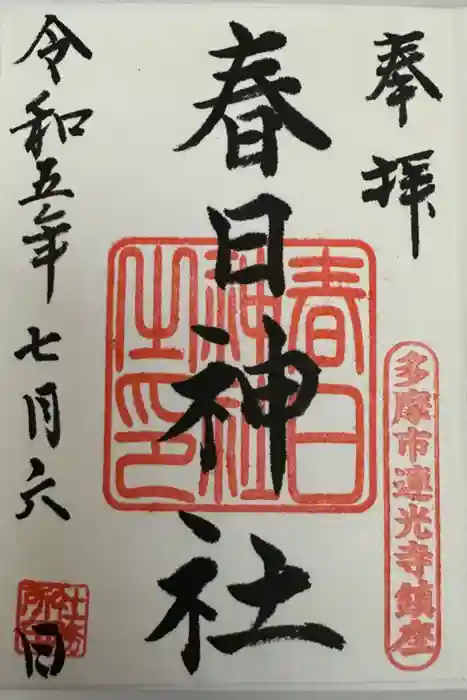 奉拝
多摩市連光寺鎮座
春日神社
春日神社之印
令和五年七月六日
社務所印